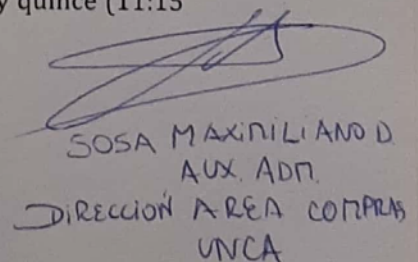 y quince (11:15
SOSA MAXIMILIANO D.
AUX. ADM.
DIRECCIÓN AREA COMPRAS
UNCA